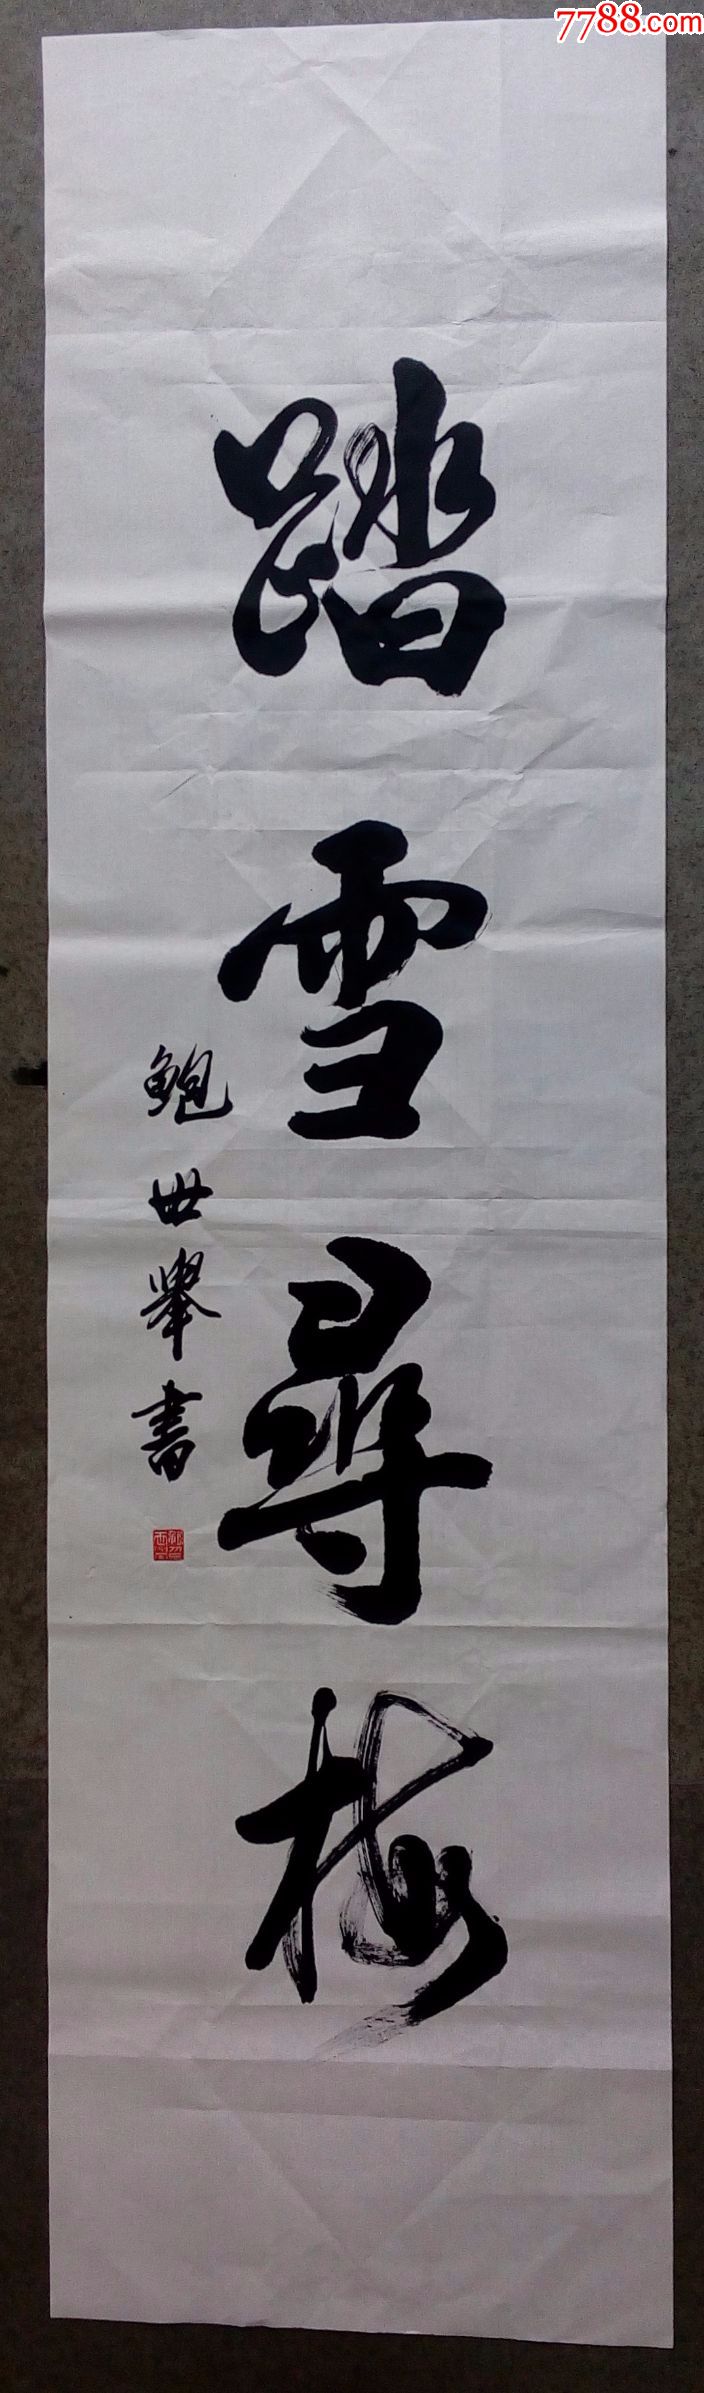 7788.com
踏雪尋梅
鮑世舉書